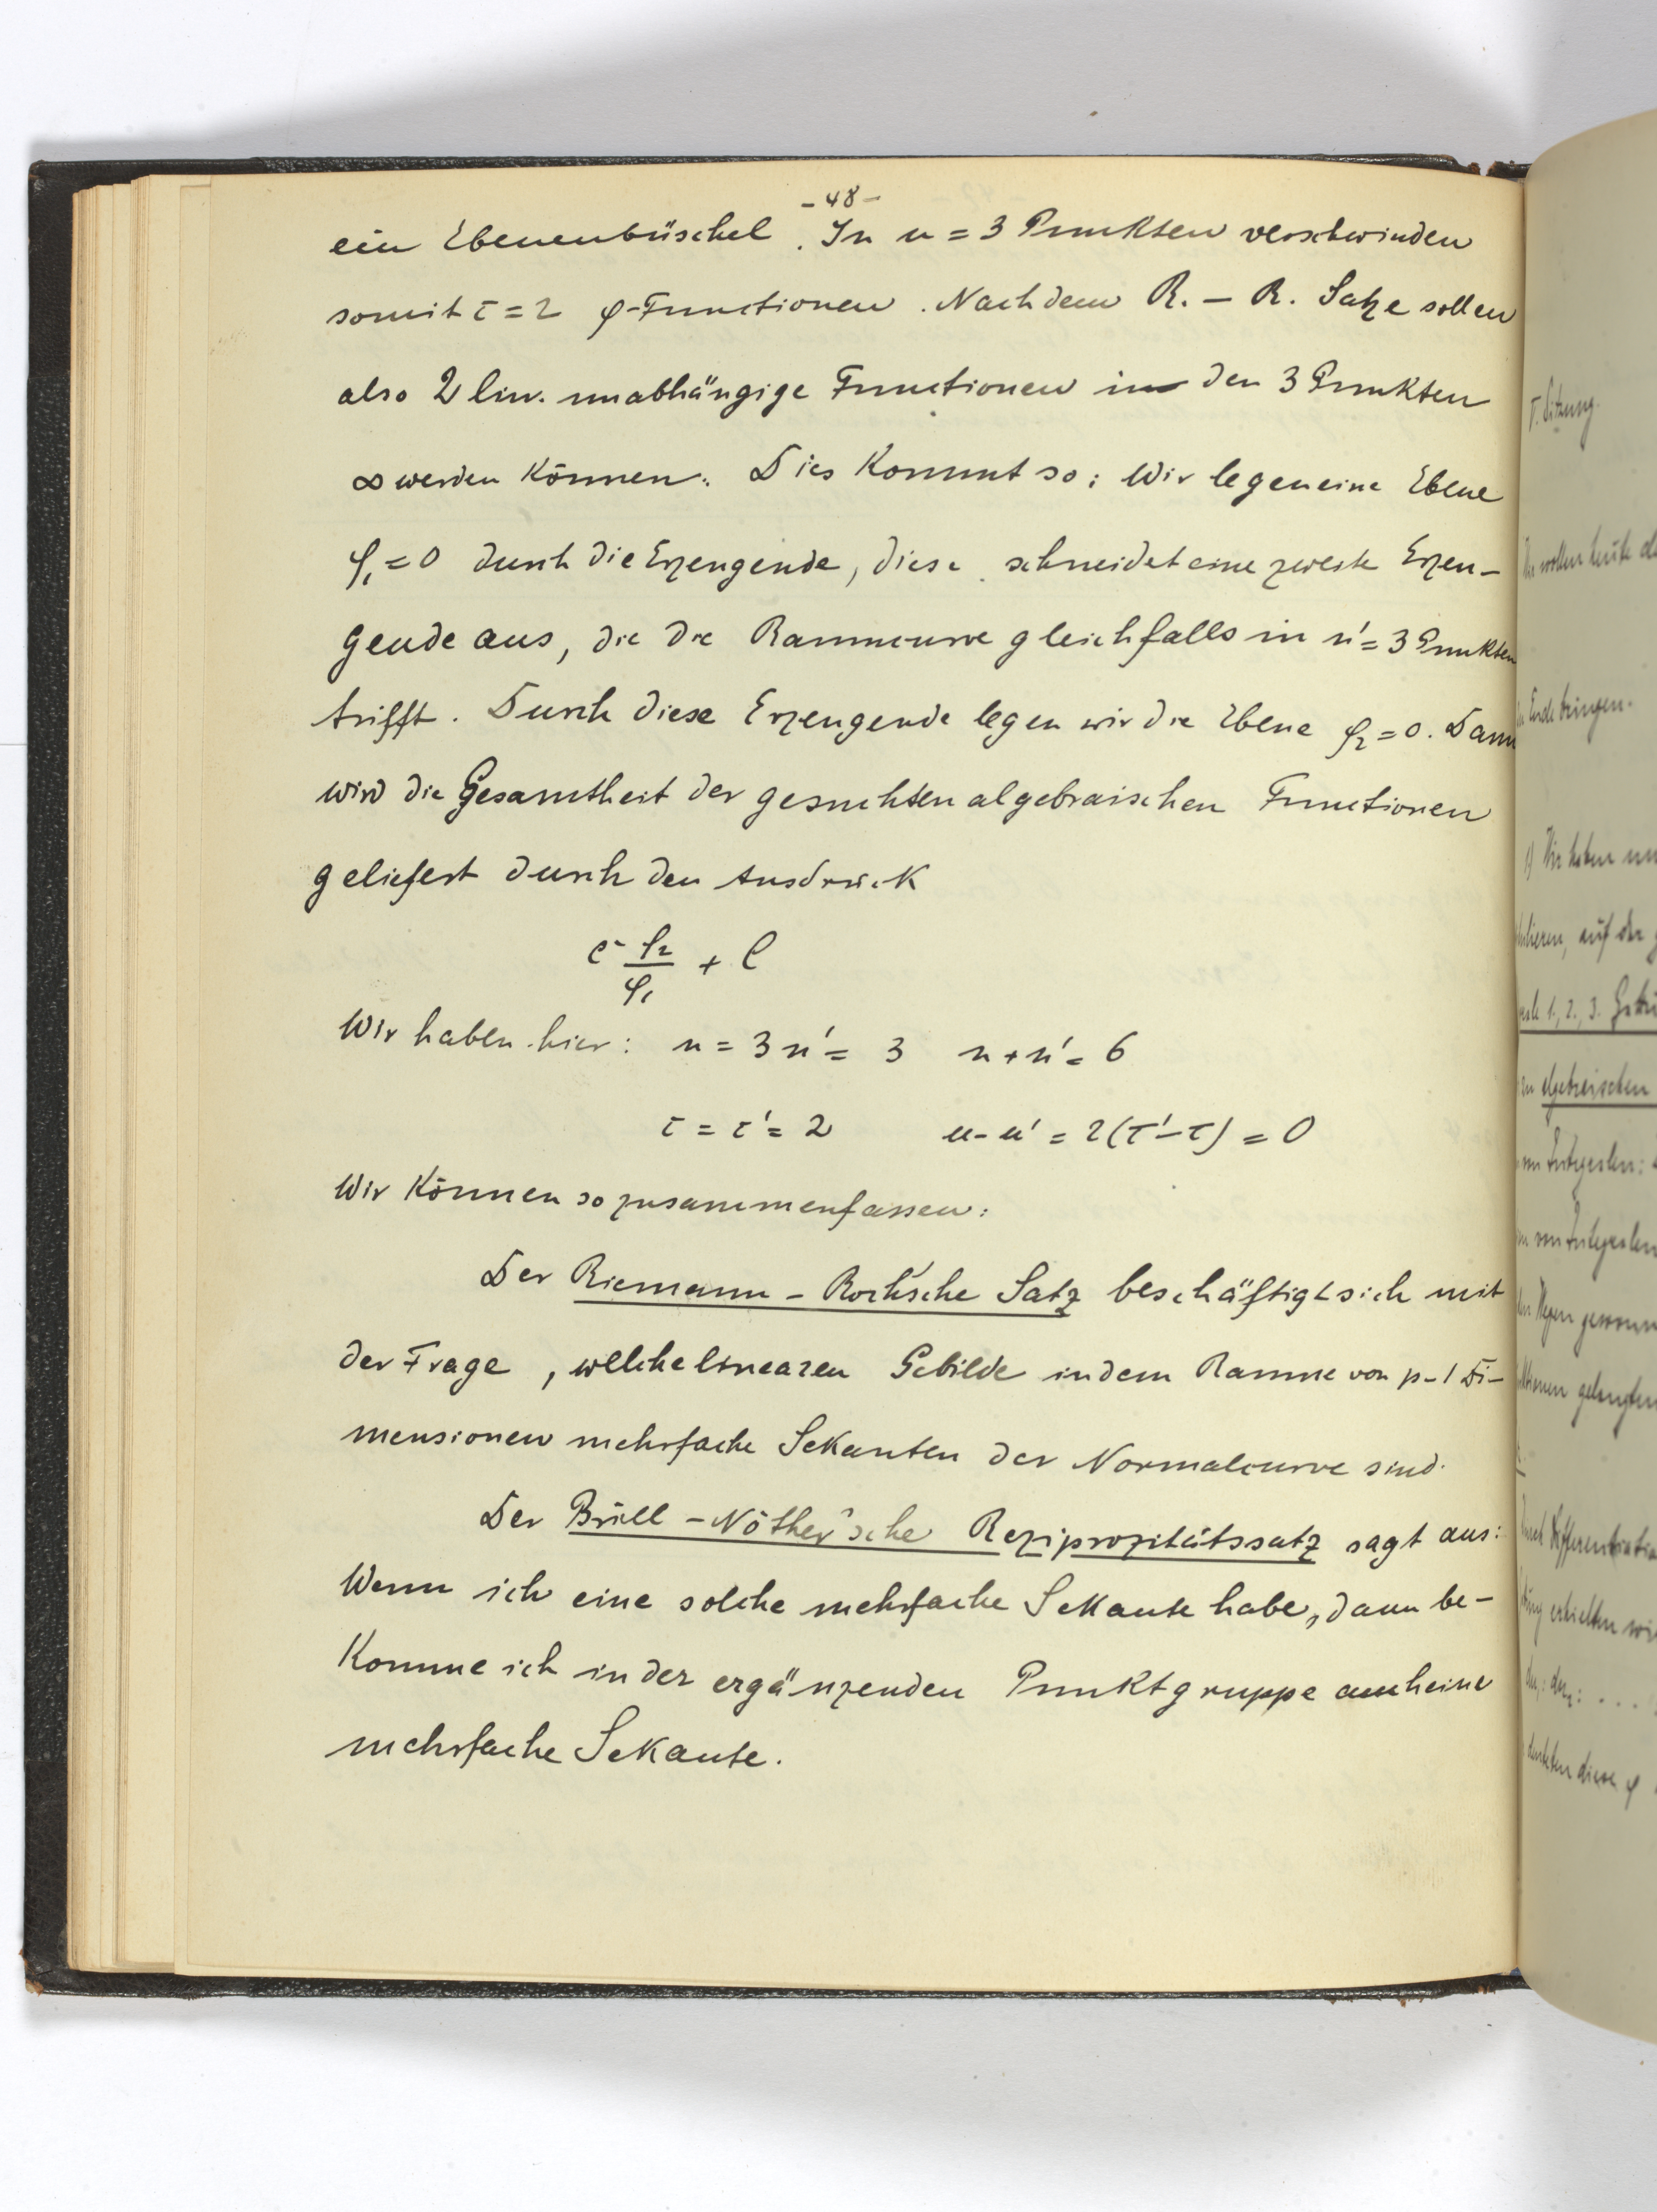 - 48 -
ein Ebenenbüschel. In n = 3 Punkten verschwinden
somit τ = 2 φ-Functionen. Nach dem R. - R. Satze sollen
also 2 lin. unabhängige Functionen in den 3 Punkten
∞ werden können. Dies kommt so: Wir legen eine Ebene
φ₁ = 0 durch die Erzeugende, diese schneidet eine zweite Erzeu-
gende aus, die die Raumcurve gleichfalls in n' = 3 Punkten
trifft. Durch diese Erzeugende legen wir die Ebene φ₂ = 0. Dann
wird die Gesamtheit der gesuchten algebraischen Functionen
geliefert durch den Ausdruck
c φ₂/φ₁ + C
Wir haben hier: n = 3 n' = 3 n + n' = 6
τ = τ' = 2 n - n' = 2(τ' - τ) = 0
Wir können so zusammenfassen:
Der Riemann - Roch'sche Satz beschäftigt sich mit
der Frage, welche linearen Gebilde in dem Raume von p-1 Di-
mensionen mehrfache Sekanten der Normalcurve sind.
Der Brill - Nöther'sche Reziprozitätssatz sagt aus:
Wenn ich eine solche mehrfache Sekante habe, dann be-
komme ich in der ergänzenden Punktgruppe auch eine
mehrfache Sekante.
Sitzung.
wollen heute
Ende bringen.
1) Wir haben
auf der
1., 2., 3.
algebraischen
von Integralen
gelangten
diese φ